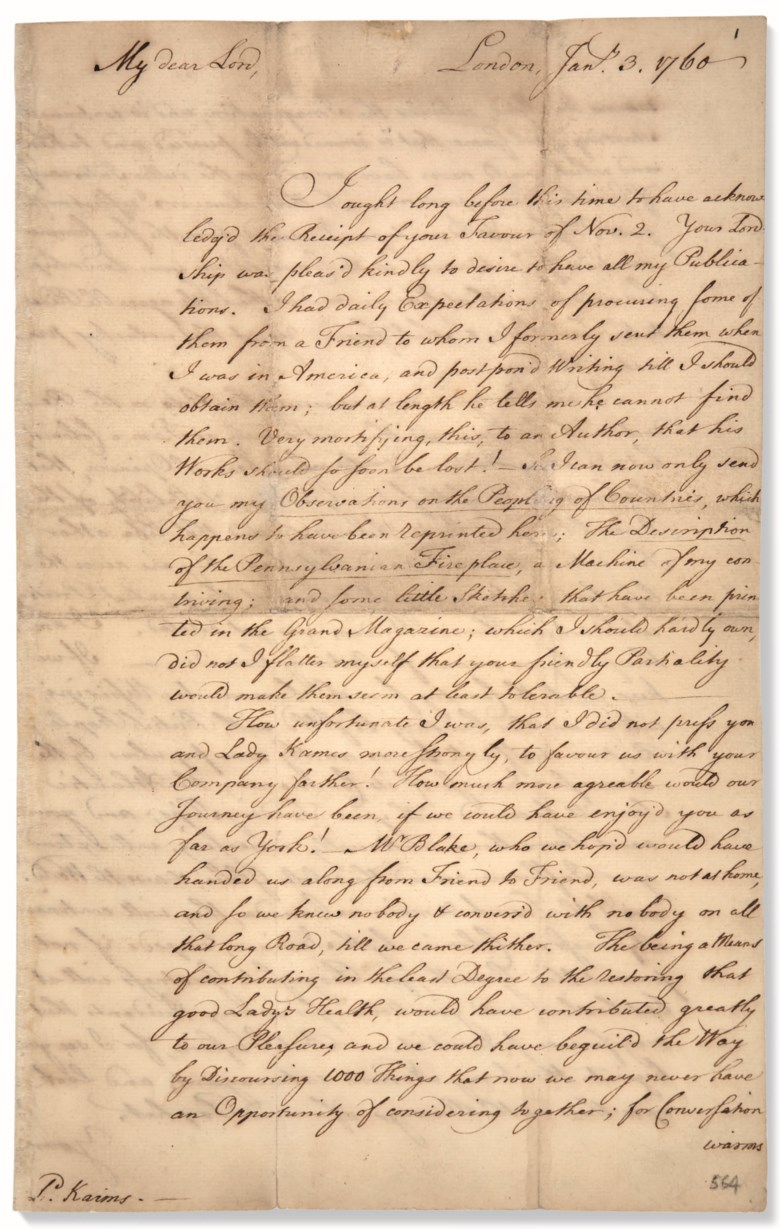 1
My dear Lord,
London, Jany. 3. 1760
I ought long before this time to have acknow
ledg'd the Receipt of your Favour of Nov. 2. Your Lord
ship was pleas'd kindly to desire to have all my Publica-
tions. I had daily Expectations of procuring some of
them from a Friend to whom I formerly sent them when
I was in America, and postpon'd Writing till I should
obtain them; but at length he tells me he cannot find
them. Very mortifying, this, to an Author, that his
Works should so soon be lost! — So I can now only send
you my Observations on the Peopling of Countries, which
happens to have been reprinted here; The Description
of the Pennsylvanian Fireplace, a Machine of my con-
triving; and some little Sketches that have been prin
ted in the Grand Magazine; which I should hardly own,
did not I flatter myself that your friendly Partiality
would make them seem at least tolerable. —
How unfortunate I was, that I did not press you
and Lady Kames more strongly, to favour us with your
Company farther! How much more agreable would our
Journey have been, if we could have enjoy'd you as
far as York! Mr Blake, who we hop'd would have
handed us along from Friend to Friend, was not at home,
and so we knew nobody & convers'd with nobody on all
that long Road, till we came thither. The being a Means
of contributing in the least Degree to the restoring that
good Lady's Health, would have contributed greatly
to our Pleasures, and we could have beguil'd the Way
by Discoursing 1000 Things that now we may never have
an Opportunity of considering together; for Conversation
warms
Ld. Kaims. —
564